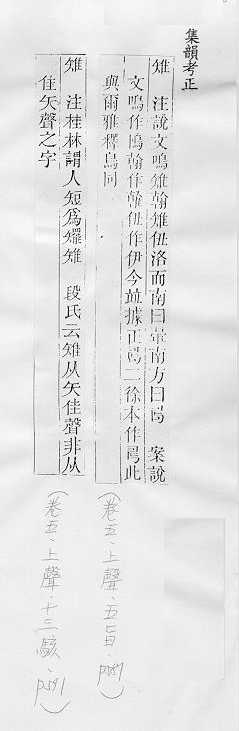 集韻考正
雉 注說文鳴雉翰雉伊洛而南曰翬南方曰 案說
文鳴作鳪翰作雗伊作伊今並據正 二徐本作 此
與爾雅釋鳥同
雉 注桂林謂人短為 雉 段氏云雉从矢隹聲非从
隹矢聲之字
(卷五、上聲、五旨、
(卷五、上聲、十三駭、p591)